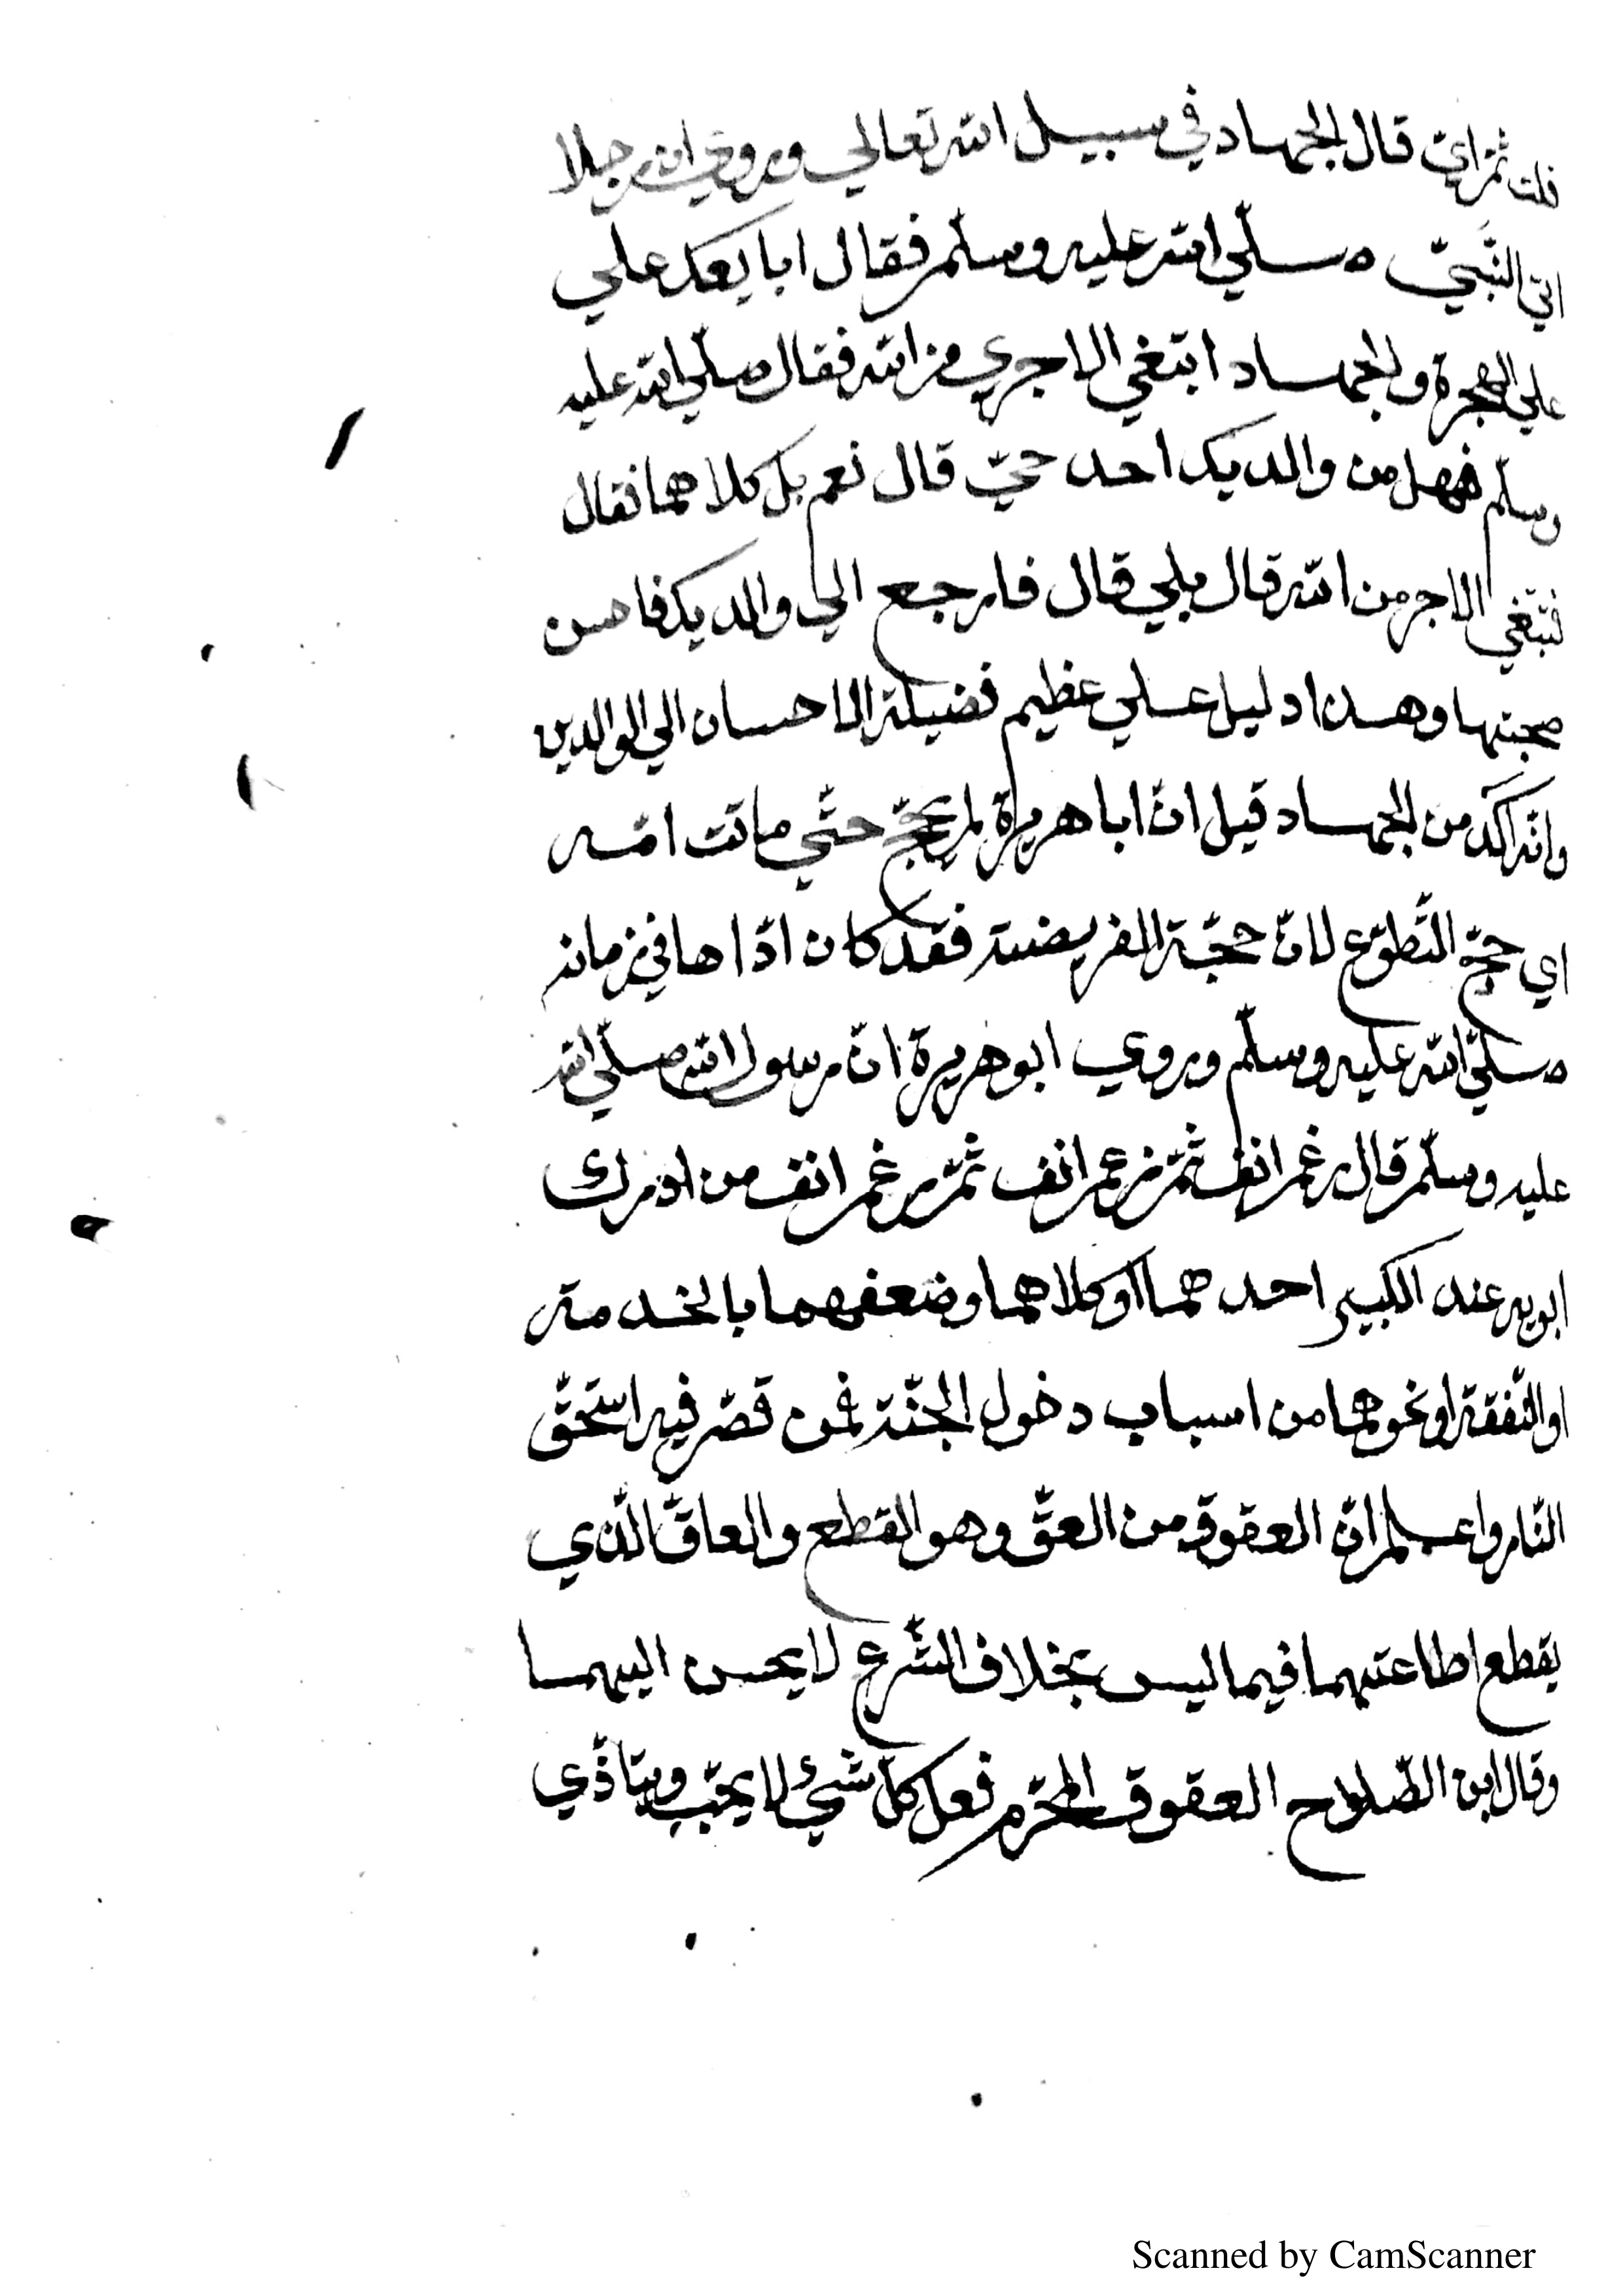 قلت ثمّ ايّ قال الجهاد في سبيل الله تعالي وروي انّ رجلا
اتي النّبيّ صلّي الله عليه وسلّم فقال ابايعك علي
علي الهجرة والجهاد ابتغي الاجري من الله فقال صلّي الله عليه
وسلّم فهل من والديك احد حيّ قال نعم بل كلاهما فقال
فتبتغي الاجر من الله قال بلي قال فارجع الي والديك فاحسن
صحبتهما وهذا دليل علي عظيم فضيلة الاحسان الي الوالدين
وانّه اكد من الجهاد قيل انّ ابا هريرة لم يحجّ حتّي ماتت امّه
اي حجّ التّطوّع لانّ حجّة الفريضة فقد كان ادّاها في زمانه
صلّي الله عليه وسلّم وروي ابو هريرة انّ رسول الله صلّي الله
عليه وسلّم قال رغم انف ثمّ رغم انف ثمّ رغم انف من ادرك
ابويه عند الكبير احدهما او كلاهما وضعفهما بالخدمة
او النّفقة او نحوهما من اسباب دخول الجنّة فمن قصّر فيه استحقّ
النّار واعلم انّ العقوق من العقّ وهو القطع والعاقّ الّذي
يقطع اطاعتهما فيما ليس بخلاف الشّرع لا يحسن اليهما
وقال ابن الصّلاح العقوق المحرّم فعل كلّ شيئ لا يحبّ ويتاذّي
Scanned by CamScanner